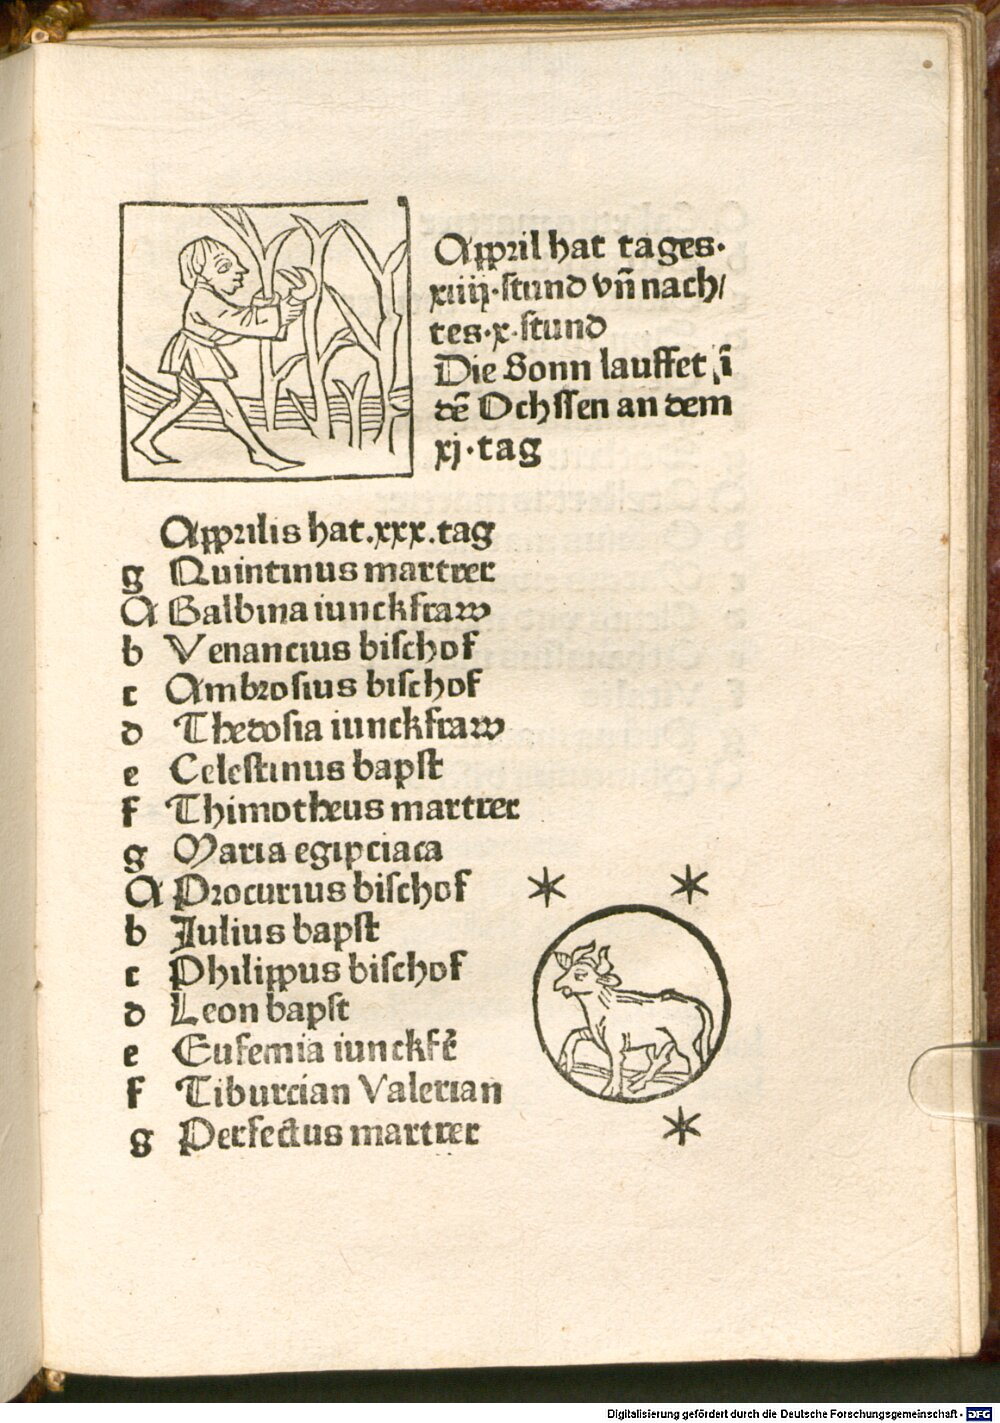 Appril hat tages·
xiiij·stund vñ nach/
tes·x·stund
Die Sonn lauffet ĩ
dẽ Ochssen an dem
xj·tag
Apprilis hat.xxx.tag
g Quintinus martrer
A Balbina iunckfraw
b Venancius bischof
c Ambrosius bischof
d Thedosia iunckfraw
e Celestinus bapst
f Thimotheus martrer
g Maria egipciaca
A Procurius bischof
b Julius bapst
c Philippus bischof
d Leon bapst
e Eufemia iunckfẽ
f Tiburcian Valerian
g Perfectus martrer
Digitalisierung gefördert durch die Deutsche Forschungsgemeinschaft - DFG